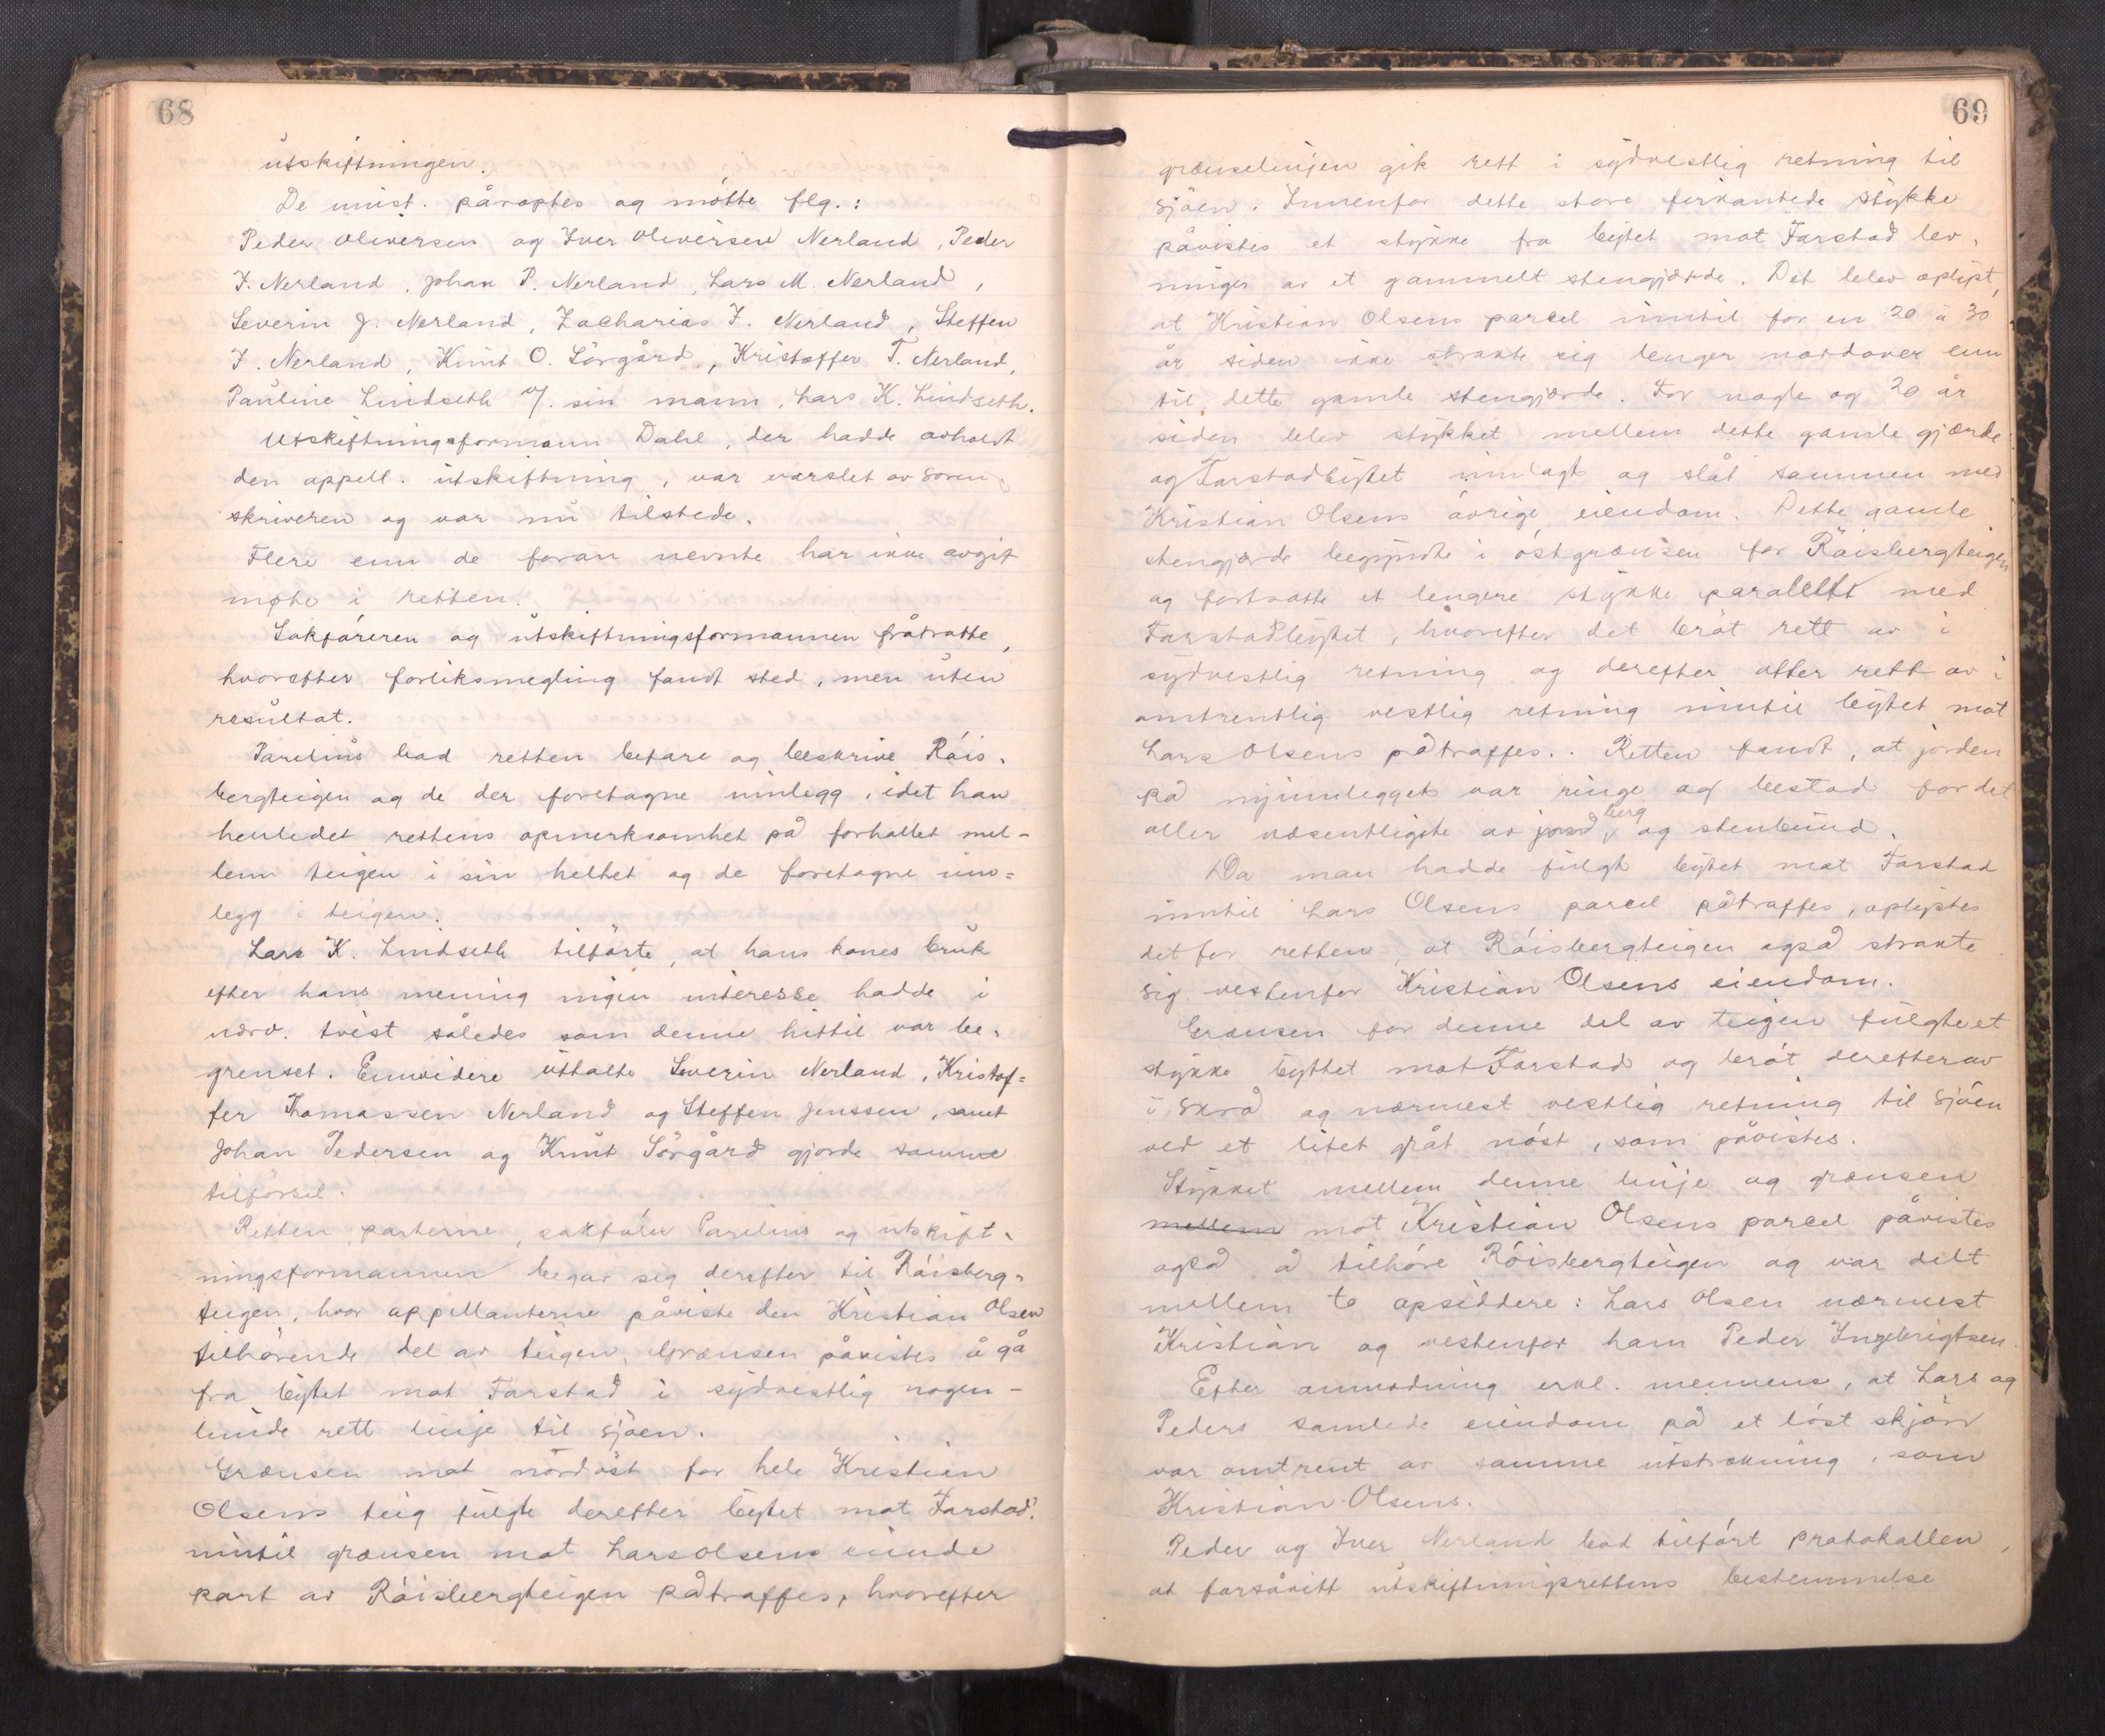 68
utskiftningen.
De innst. påroptes og møtte flg.:
Peder Oliversen og Iver Oliversen Nerland, Peder
I. Nerland, Johan P. Nerland, Lars M. Nerland,
Severin J. Nerland, Zacharias I. Nerland, Steffen
I. Nerland, Knut O. Sörgård, Kristoffer T. Nerland,
Pauline Lindseth v/. sin mann, Lars K. Lindseth.
Utskiftningsformann Dahl, der hadde avholdt
den appell. utskiftning, var varslet av soren-
skriveren og var nu tilstede.
Flere enn de foran nevnte har ikke avgit
møte i retten.
Sakføreren og utskiftningsformannen fråtratte,
hvorefter forliksmegling fandt sted, men uten
resultat.
Parelius bad retten befare og beskrive Röis-
bergteigen og de der foretagne innlegg, idet han
henledet rettens opmerksomhet på forholdet mel-
lem teigen i sin helhet og de foretagne inn=
legg i teigen.
Lars K. Lindseth tilförte, at hans kones bruk
efter hans mening ingen interesse hadde i
nærv. tvist således som denne hittil var be-
grenset. Envidere uttalte Severin Nerland, Kristof=
fer Thomassen Nerland og Steffen Jenssen, samt
Johan Pedersen og Knut Sörgård gjorde samme
tilförsel.
Retten, parterne, sakfører Parelius og utskift-
ningsformannen begav seg derefter til Röisberg-
teigen, hvor appellanterne påviste den Kristian Olsen
tilhörende del av teigen. Grænsen påvistes å gå
fra bytet mot Farstad i sydvestlig nogen-
lunde rett linje til sjöen.
Grænsen mot nordöst for hele Kristian
Olsens teig fulgte derefter bytet mot Farstad
inntil grænsen mot Lars Olsens eiende
part av Röisbergteigen påtraffes, hvorefter
69
grænselinjen gik rett i sydvestlig retning til
sjöen. Innenfor dette store firkantede stykke
påvistes et stykke fra bytet mot Farstad lev-
ninger av et gammelt stengjærde. Det blev oplyst,
at Kristian Olsens parcel inntil for en 20 à 30
år siden ikke strakte sig lenger nordover enn
til dette gamle stengjærde. For nogle og 20 år
siden blev stykket mellem dette gamle gjærde
og Farstadbytet innlagt og slåt sammen med
Kristian Olsens övrige eiendom. Dette gamle
stengjærde begyndte i östgrænsen for Röisbergteigen
og fortsatte et lengere stykke paralellt med
Farstadbytet, hvorefter det bröt rett av i
sydvestlig retning og derefter atter rett av i
omtrentlig vestlig retning inntil bytet mot
Lars Olsens påtraffes. Retten fandt, at jorden
på nyinnlegget var ringe og bestod for det
aller væsentligste av jord, berg og stenbund.
Da man hadde fulgt bytet mot Farstad
inntil Lars Olsens parcel påtraffes, oplystes
det for retten, at Röisbergteigen også strakte
sig vestenfor Kristian Olsens eiendom.
Grænsen for denne del av teigen fulgte et
stykke byttet mot Farstad og bröt derefter av
i skrå og nærmest vestlig retning til sjöen
ved et litet gråt nöst, som påvistes.
Stykket mellem denne linje og grænsen
mellem mot Kristian Olsens parcel påvistes
også å tilhöre Röisbergteigen og var delt
mellem to opsiddere: Lars Olsen nærmest
Kristian og vestenfor ham Peder Ingebrigtsen.
Efter anmodning erkl. mennene, at Lars og
Peders samlede eiendom på et löst skjön
var omtrent av samme utstrækning, som
Kristian Olsens.
Peder og Iver Nerland bad tilfört protokollen,
at forsåvitt utskiftningsrettens bestemmelse